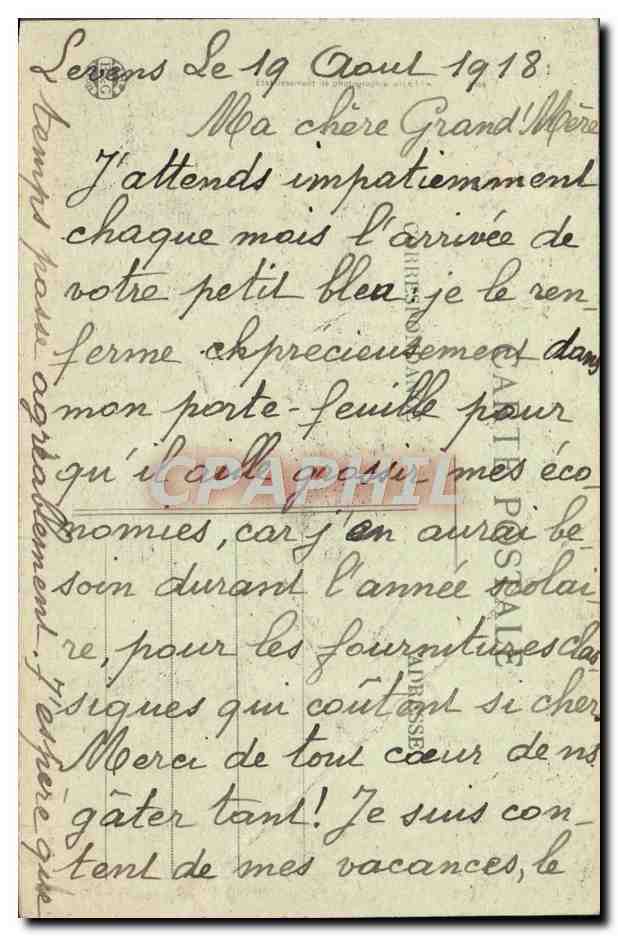 Levens Le 19 Aout 1918
Ma chère Grand'Mère
J'attends impatiemment
chaque mois l'arrivée de
votre petit bleu je le ren-
ferme précieusement dans
mon porte-feuille pour
qu'il aille grossir mes éco-
nomies, car j'en aurai be-
soin durant l'année scolai-
re, pour les fournitures clas
siques qui coûtent si cher
Merci de tout cœur de ns
gâter tant! Je suis con-
tent de mes vacances, le
temps passe agréablement. J'espère que
CARTE POSTALE
CORRESPONDANCE
ADRESSE
CPAPHIL